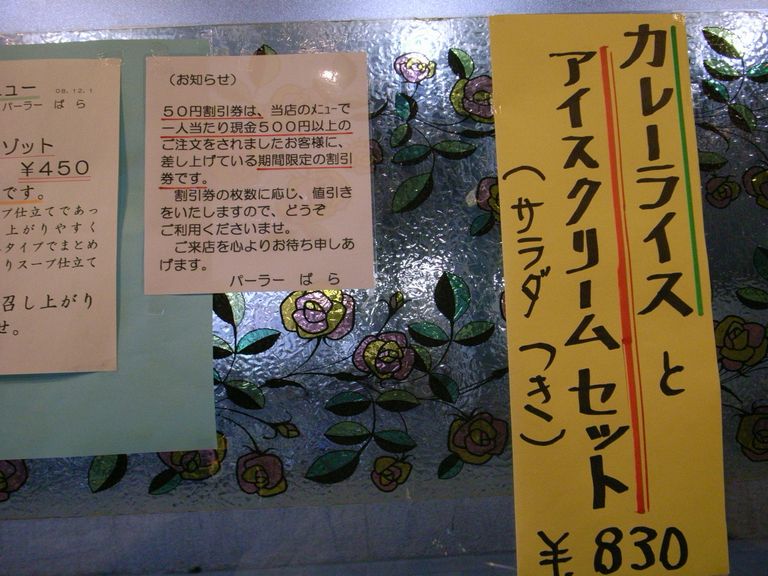 ュー 08.12.1
パーラー ばら
ゾット
￥450
です。
プ仕立てであっ
上がりやすく
タイプでまとめ
りスープ仕立て
召し上がり
せ。
（お知らせ）
５０円割引券は、当店のﾒﾆｭｰで
一人当たり現金５００円以上の
ご注文をされましたお客様に、
差し上げている期間限定の割引
券です。
割引券の枚数に応じ、値引き
をいたしますので、どうぞ
ご利用くださいませ。
ご来店を心よりお待ち申しあ
げます。
パーラー ばら
カレーライスと
アイスクリームセット
（サラダつき）
￥830